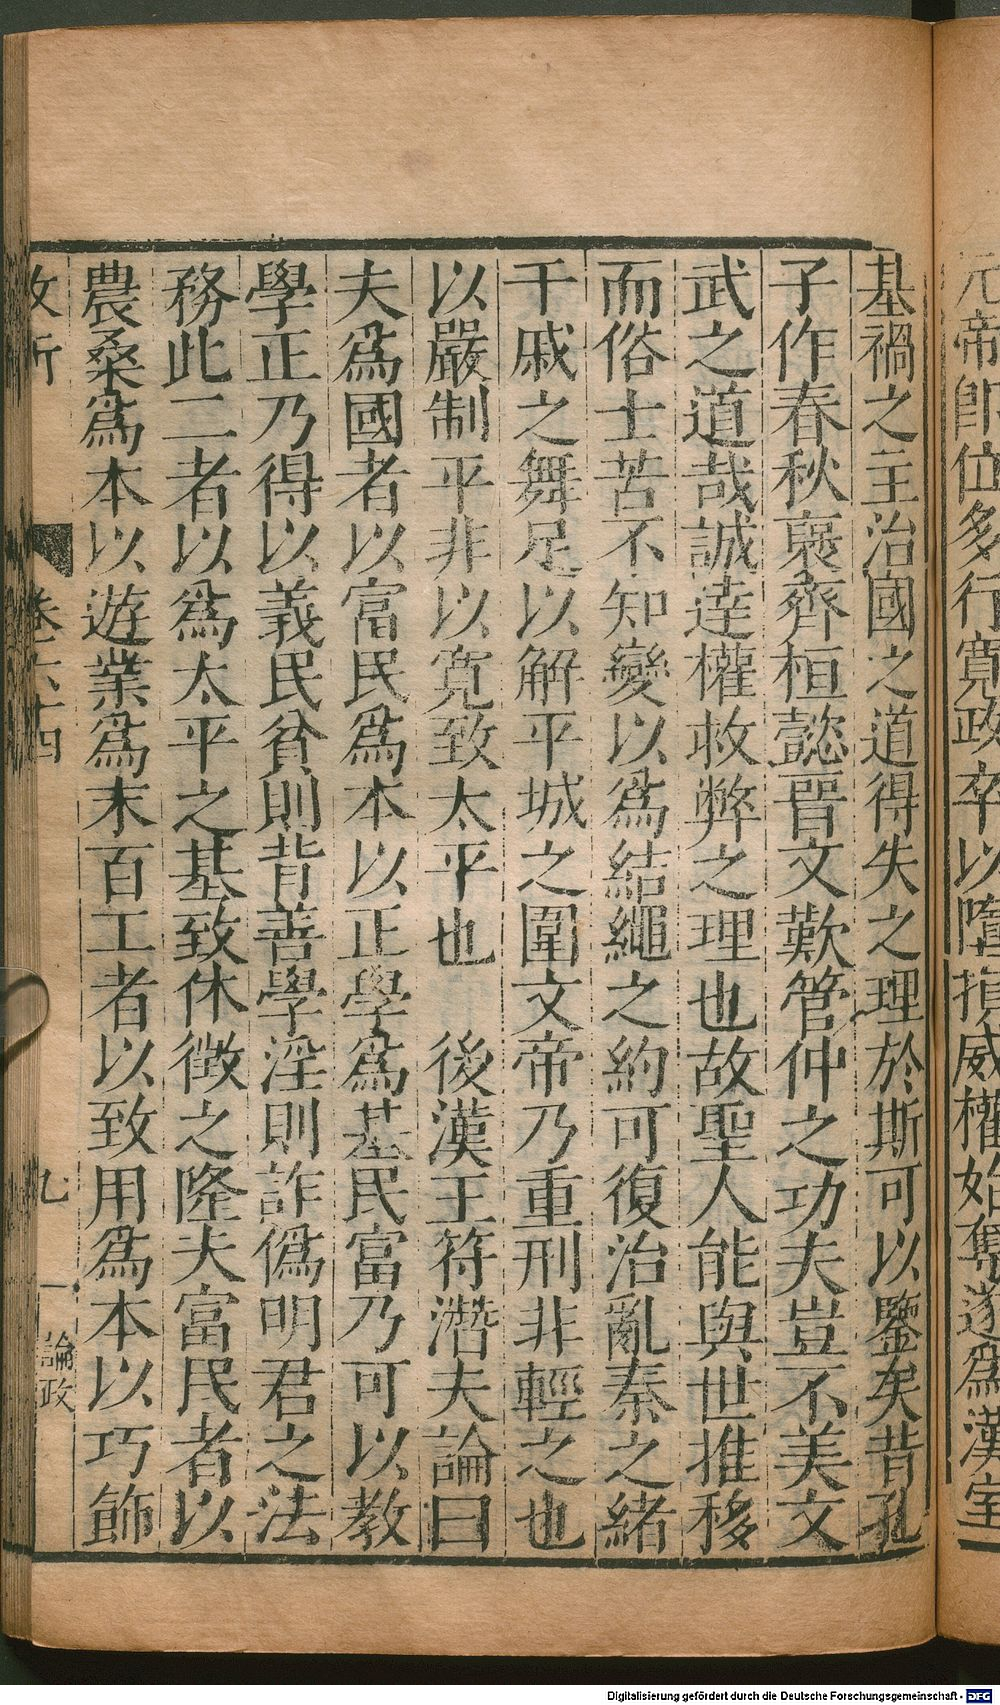 元帝即位多行寬政卒以墮損威權始奪遂爲漢室
基禍之主治國之道得失之理於斯可以鑒矣昔孔
子作春秋褒齊桓懿晉文歎管仲之功夫豈不美文
武之道哉誠達權救弊之理也故聖人能與世推移
而俗士苦不知變以爲結繩之約可復治亂秦之緒
干戚之舞足以解平城之圍文帝乃重刑非輕之也
以嚴制平非以寬致太平也　後漢王符潛夫論曰
夫爲國者以富民爲本以正學爲基民富乃可以教
學正乃得以義民貧則背善學淫則詐僞明君之法
務此二者以爲太平之基致休徵之隆夫富民者以
農桑爲本以遊業爲末百工者以致用爲本以巧飾
卷六十四
九
論政
Digitalisierung gefördert durch die Deutsche Forschungsgemeinschaft - DFG